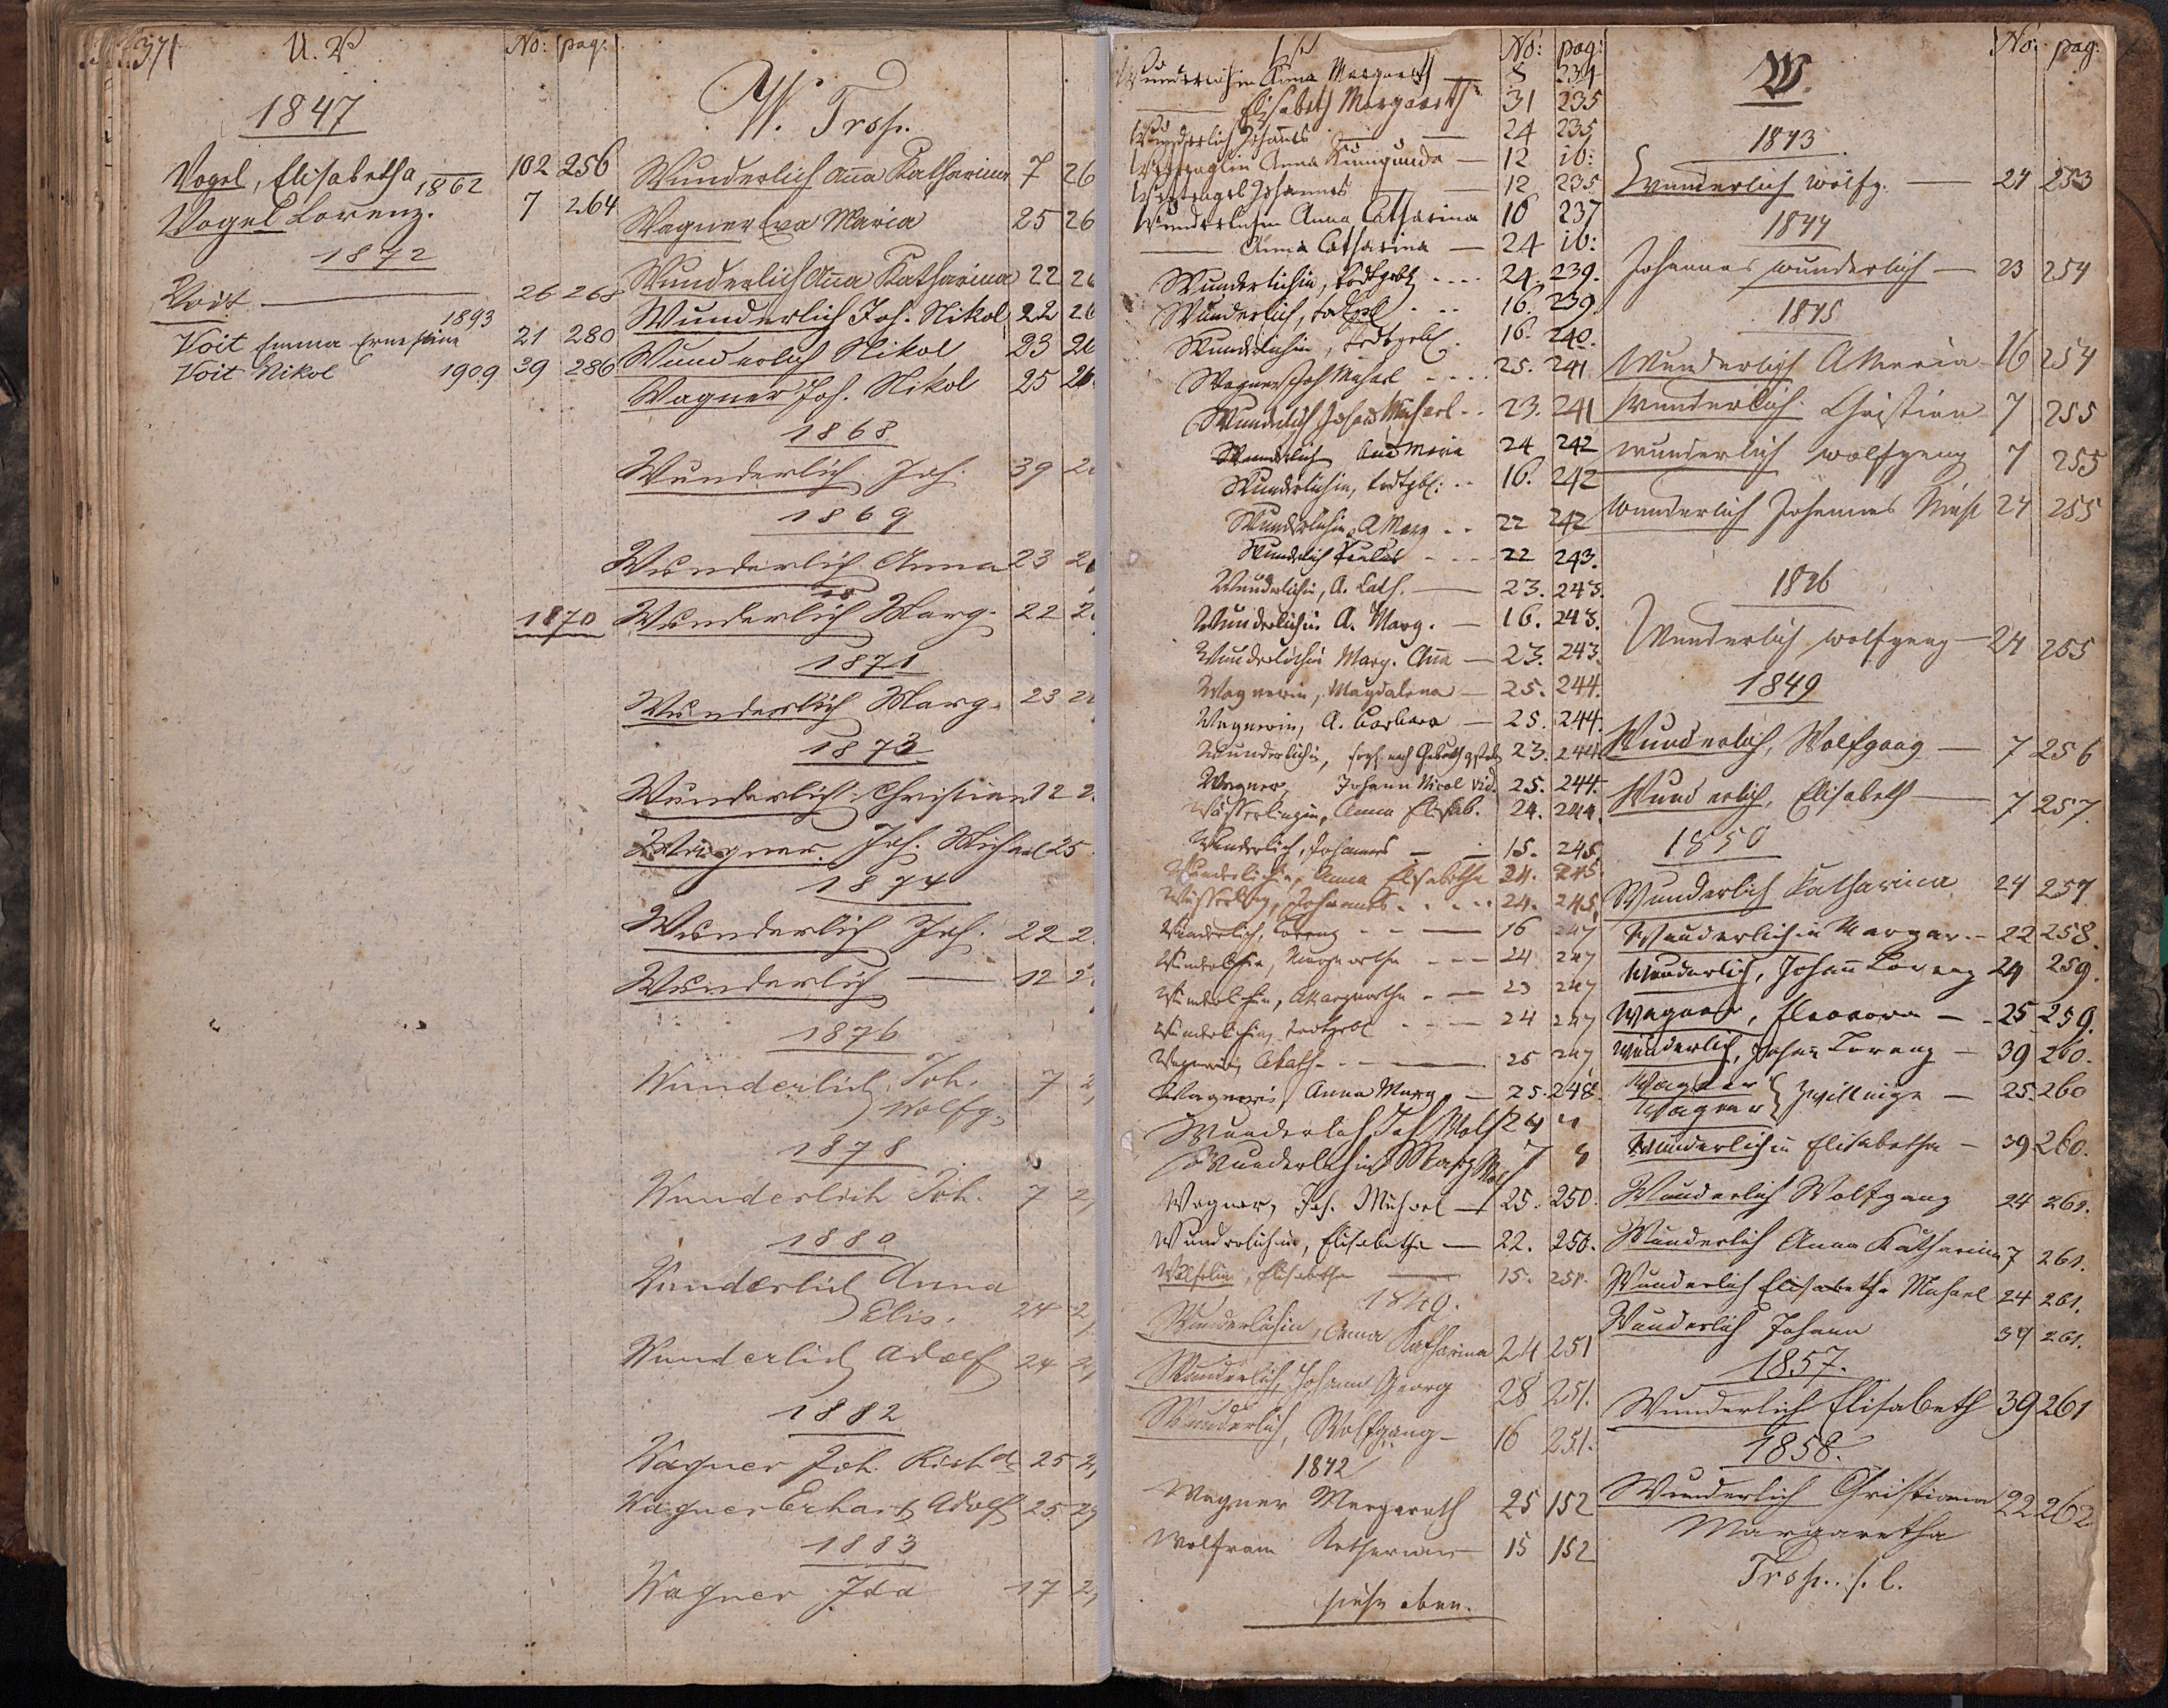 371 U. V No: pag:
1847
Vogel, Elisabetha 102 256
1862
Vogel Lorenz. 7 264
1872
Voit 26 268
1893
Voit Emma Ernestine 21 280
Voit Nikol 1909 39 286
W. Forts.
Wunderlich Anna Katharina 7 26
Wagner Eva Maria 25 26
Wunderlich Anna Katharina 22 26
Wunderlich Joh. Nikol 22 26
Wunderlich Nikol 23 26
Wagner Joh. Nikol 25 26
1868
Wunderlich Joh. 39 2
1869
Wunderlich Anna 23 2
1870 Wunderlich Marg. 22 2
1871
Wunderlich Marg. 23 2
1873
Wunderlich Christian 12 2
Wagner Joh. Michael 25
1874
Wunderlich Joh. 22 2
Wunderlich 12 2
1876
Wunderlich Joh. 7 2
Wolfg.
1878
Wunderlich Joh. 7 2
1880
Wunderlich Anna
Elis. 24 2
Wunderlich Adolf 24 2
1882
Wagner Joh. Richd. 25 2
Wagner Erhard Adolf 25. 2
1883
Wagner Ida 17 2
No: pag:
Wunderlichin Anna Margareth 8 234
Elisabeth Margareth 31 235
Wunderlich Johannes 24 235
Anna Kunigunda 12 ib:
Johannes 12 235
Wunderlichin Anna Catharina 16 237
Anna Catharina 24 ib:
Wunderlichin, todtgeb. 24. 239.
Wunderlich, todtgeb. 16. 239
Wunderlichin, todtgeb. 16. 240.
Wagner Joh Michael 25. 241
Wunderlich Johann Michael 23. 241
Wunderlich Anna Maria 24 242
Wunderlichin, todtgb. 16. 242
Wunderlichin A Marg 22 242
Wunderlich 22 243.
Wunderlichin, A. Cath. 23. 243.
Wunderlichin A. Marg. 16. 243.
Wunderlichin Marg. Anna 23. 243.
Wagnerin, Magdalena 25. 244.
Wagnerin, A. Barbara 25. 244.
Wunderlichin, nach 23. 244.
Wagner, Johann Nicol 25. 244.
Wasserlingin, Anna Elisab. 24. 244.
Wunderlich, Johannes 15. 245.
Wunderlichin, Anna Elisabetha 24. 245.
Johannes 24. 245.
Wunderlich, Lorenz 16 247
Wunderlichin, Margaretha 24 247
Wunderlichin, Margaretha 23 247
Wunderlichin, todtgeb 24 247
Wagnerin, Kath. 25 247
Wagnerin Anna Marg. 25. 248.
Wunderlich Joh Wolf 24 "
Wunderlichin Marg 7
Wagner, Joh. Michael 25. 250.
Wunderlichin, Elisabetha 22. 250.
Elisabetha 15. 251.
1840.
Wunderlichin, Anna Katharina 24 251
Wunderlich Johann Georg 28 251.
Wunderlich, Wolfgang 16 251.
1842
Wagner Margareth 25 152
Wolfram Katharina 15 152
siehe oben.
W. No: pag:
1843
Wunderlich Wolfg. 24 253
1844
Johannes Wunderlich 23 254
1845
Wunderlich A Maria 16 254
Wunderlich Christian 7 255
Wunderlich Wolfgang 7 255
Wunderlich Johannes 24 255
1846
Wunderlich Wolfgang 24 255
1849
Wunderlich, Wolfgang 7 256
Wunderlich, Elisabeth 7 257.
1850
Wunderlich Katharina 24 257.
Wunderlichin Margar. 22 258.
Wunderlich, Johann Lorenz 24 259.
Wagner, Eleonora 25 259.
Wunderlich, Johann Lorenz 39 260.
Wagner
Wagner } Zwillinge 25. 260
Wunderlichin Elisabetha 39 260.
Wunderlich Wolfgang 24 261.
Wunderlich Anna Katharina 7 261.
Wunderlich Elisabetha Michael 24 261.
Wunderlich Johann 39 261.
1857.
Wunderlich Elisabeth 39 261
1858.
Wunderlich Christiana 22 262
Margaretha
Forts. s. l.